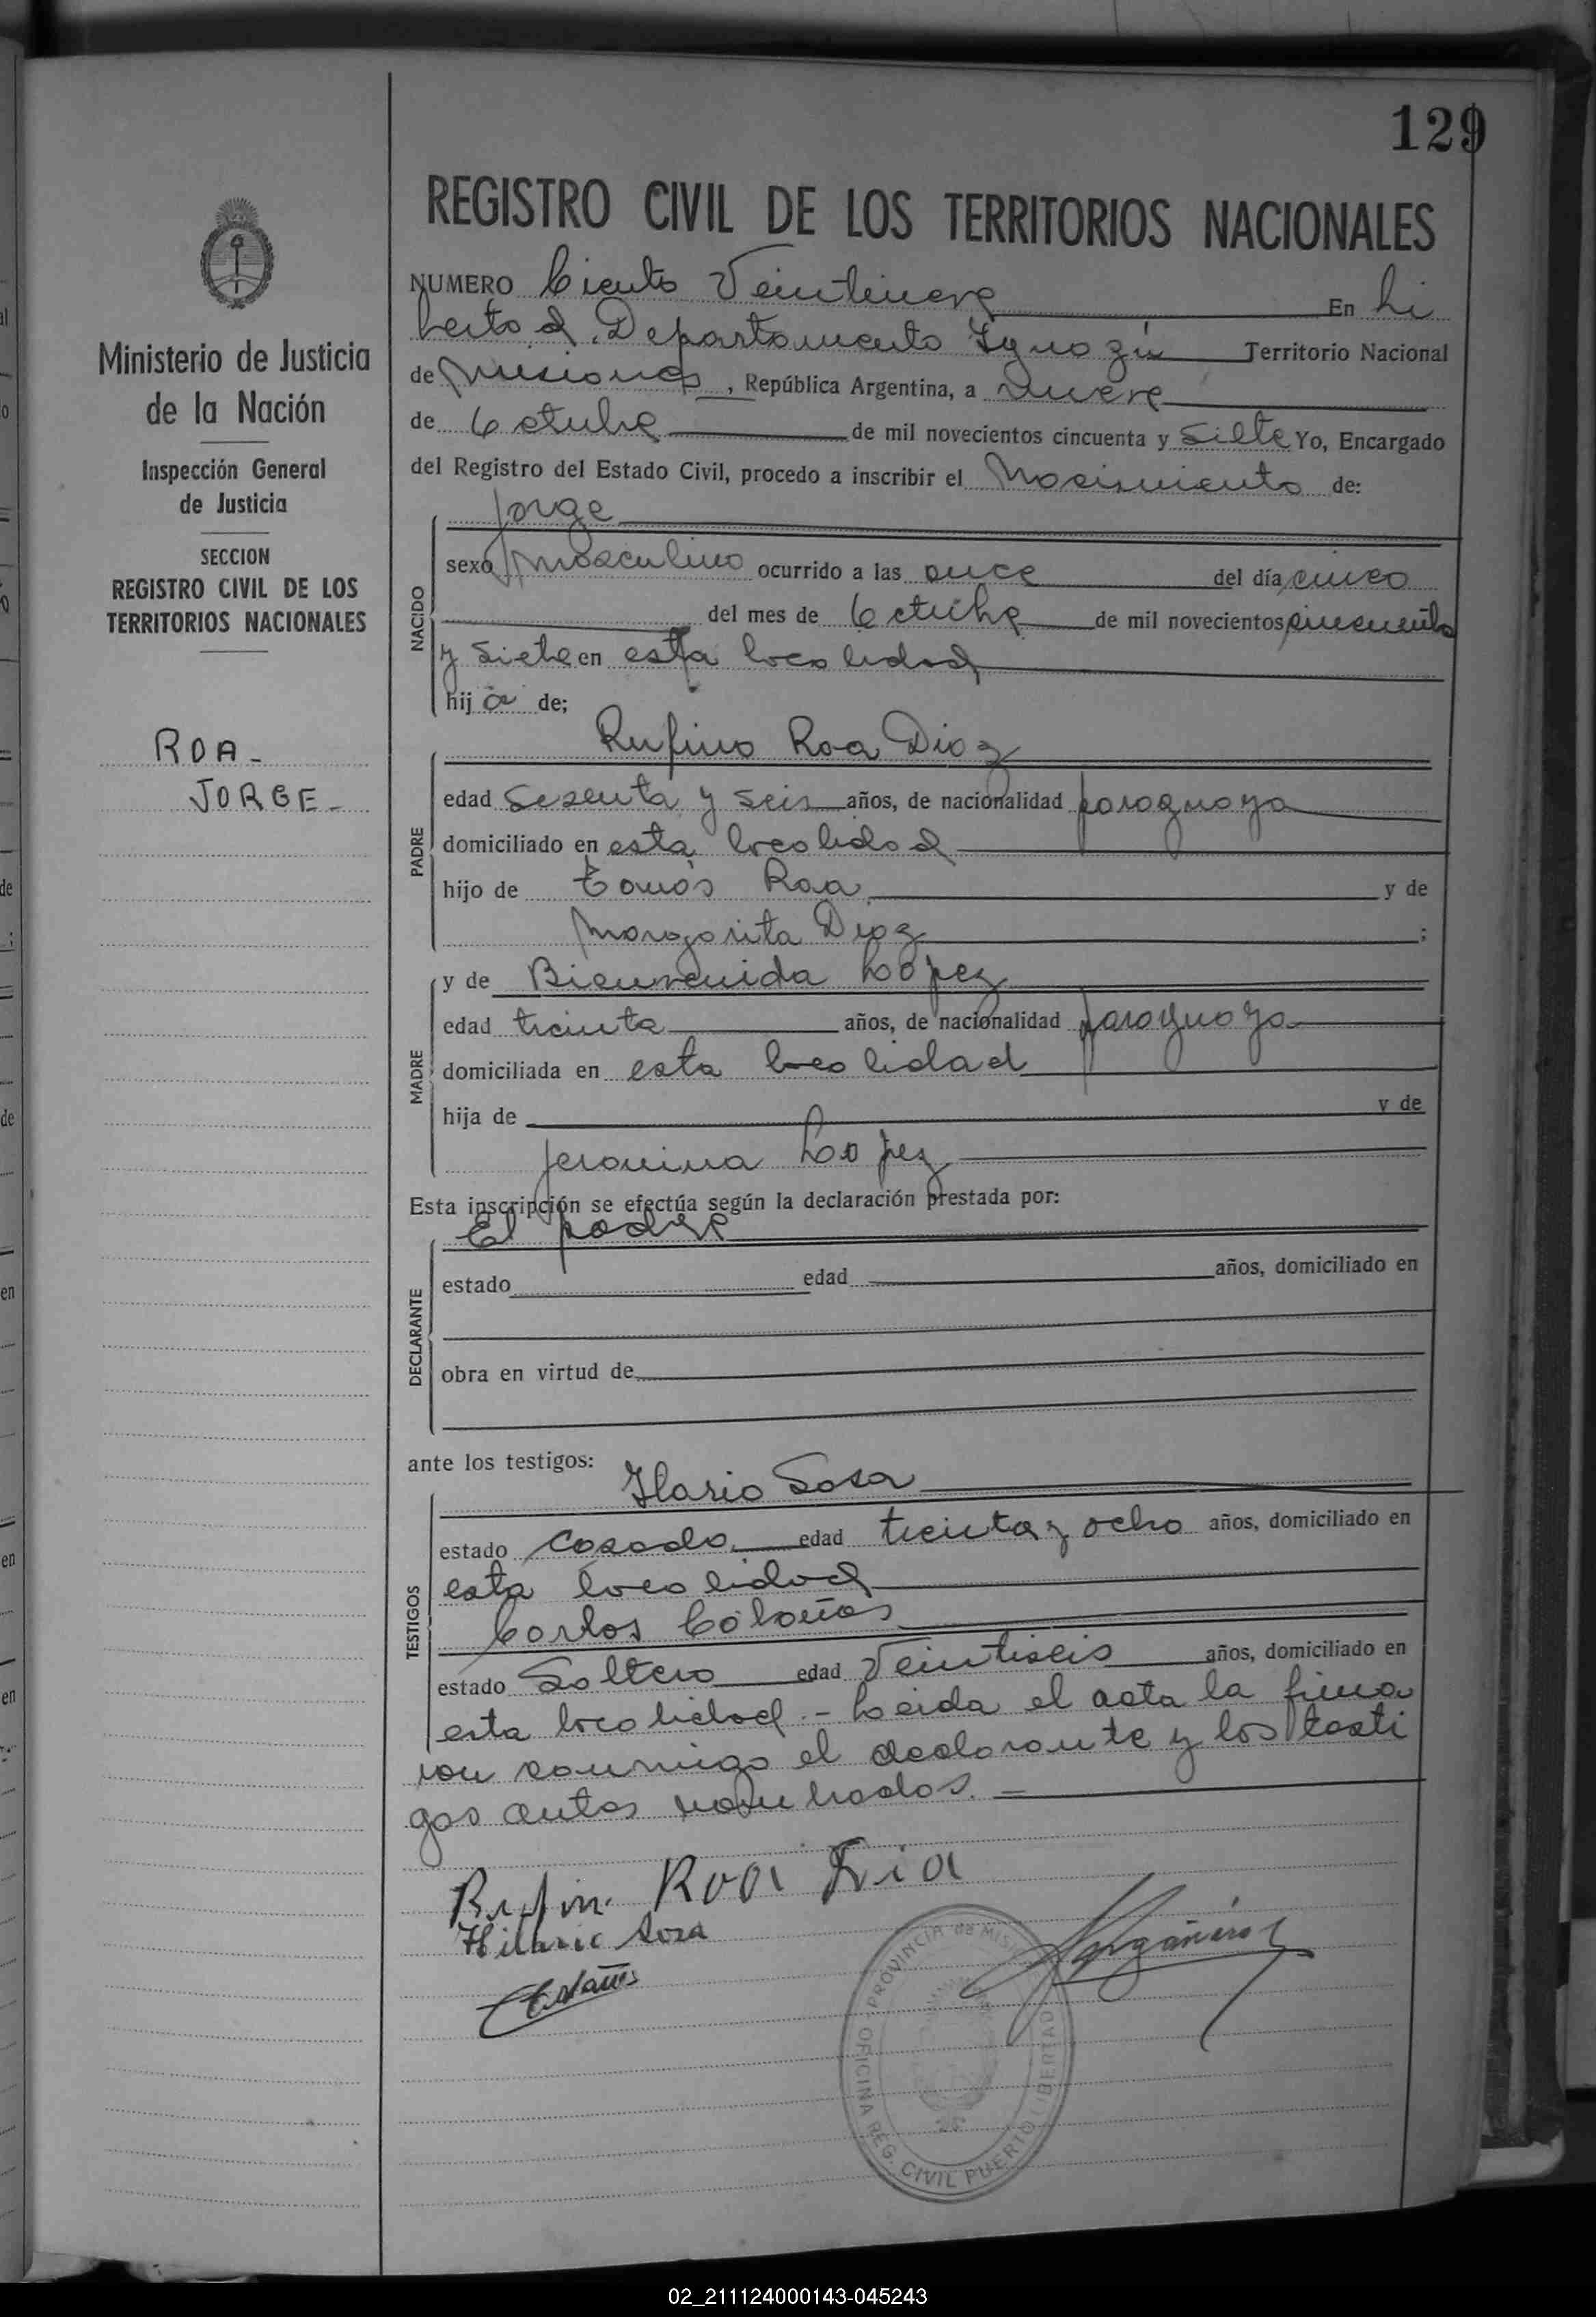 129
REGISTRO CIVIL DE LOS TERRITORIOS NACIONALES
NUMERO Ciento Veintinueve En Li
bertad Departamento Iguazú Territorio Nacional
de Misiones, República Argentina, a nueve
de Octubre de mil novecientos cincuenta y siete Yo, Encargado
del Registro del Estado Civil, procedo a inscribir el Nacimiento de:
Ministerio de Justicia
de la Nación
Inspección General
de Justicia
SECCION
REGISTRO CIVIL DE LOS
TERRITORIOS NACIONALES
ROA-
JORGE-
NACIDO
Jorge
sexo masculino ocurrido a las once del día cinco
del mes de Octubre de mil novecientos cincuenta
y siete en esta localidad
hij o de;
PADRE
Rufino Roa Diaz
edad Sesenta y seis años, de nacionalidad paraguaya
domiciliado en esta localidad
hijo de Tomás Roa y de
Margarita Diaz ;
MADRE
y de Bienvenida Lopez
edad treinta años, de nacionalidad paraguaya
domiciliada en esta localidad
hija de y de
Jeronima Lopez
Esta inscripción se efectúa según la declaración prestada por:
DECLARANTE
El padre
estado edad años, domiciliado en
obra en virtud de
ante los testigos:
TESTIGOS
Ilario Sosa
estado Casado edad treinta y ocho años, domiciliado en
esta localidad
Carlos Cabañas
estado Soltero edad Veintiseis años, domiciliado en
esta localidad.- Leida el acta la firma
ron conmigo el declarante y los testi
gos antes nombrados.-
Rufin Roa Dia
Hilario Sosa
OFICINA REG. CIVIL PUERTO LIBERTAD
PROVINCIA de MISI
02_211124000143-045243